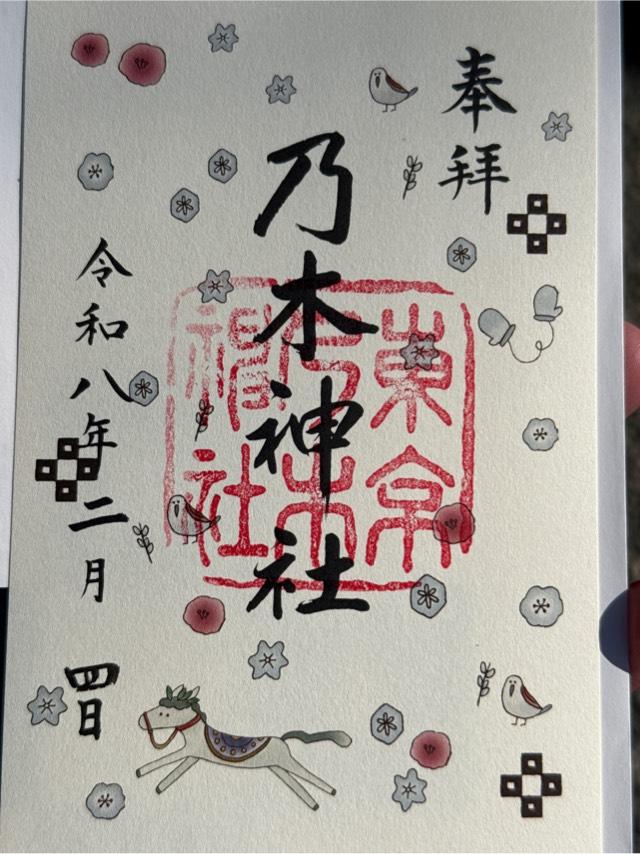 奉拝
乃木神社
東京
乃木
神社
令和八年二月
四日